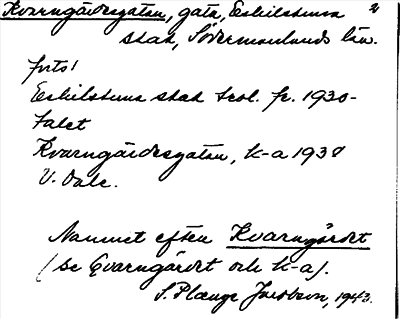 Kvarngärdesgatan, gata, Eskilstuna 2
stad, Södermanlands län.
forts!
Eskilstuna stad fr. 1930-
talet
Kvarngärdesgatan, k-a 1938
V. Dale.
Namnet efter Kvarngärdet
(se Qvarngärdet och k-a).
S. Plænge Jacobson, 1943.